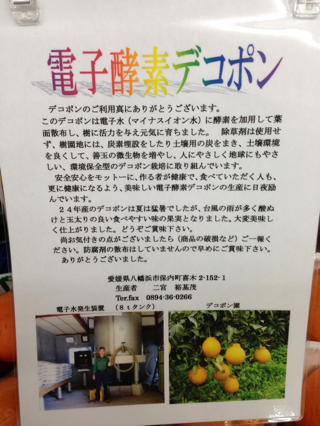 電子酵素デコポン
デコポンのご利用真にありがとうございます。
このデコポンは電子水（マイナスイオン水）に酵素を加用して葉
面散布し、樹に活力を与え元気に育ちました。　除草剤は使用せ
ず、樹園地には、炭素埋設をしたり土壌用の炭をまき、土壌環境
を良くして、善玉の微生物を増やし、人にやさしく地球にもやさ
しい、環境保全型のデコポン栽培に取り組んでいます。
安全安心をモットーに、作る者が健康で、食べていただく人も、
更に健康になるよう、美味しい電子酵素デコポンの生産に日夜励
んでいます。
２４年産のデコポンは夏は猛暑でしたが、台風の雨が多く酸ぬ
けと玉太りの良い食べやすい味の果実となりました。大変美味し
く仕上がりました。どうぞご賞味下さい。
尚お気付きの点がございましたら（商品の破損など）ご一報く
ださい。防腐剤の散布はしていませんので早めにご賞味下さい。
ありがとうございました。
愛媛県八幡浜市保内町喜木 2-152-1
生産者　二宮　裕基茂
Ter.fax　0894-36-0266
電子水発生装置　（８ｔタンク）　デコポン園